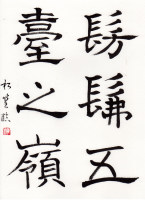 髣髴五
臺之嶺